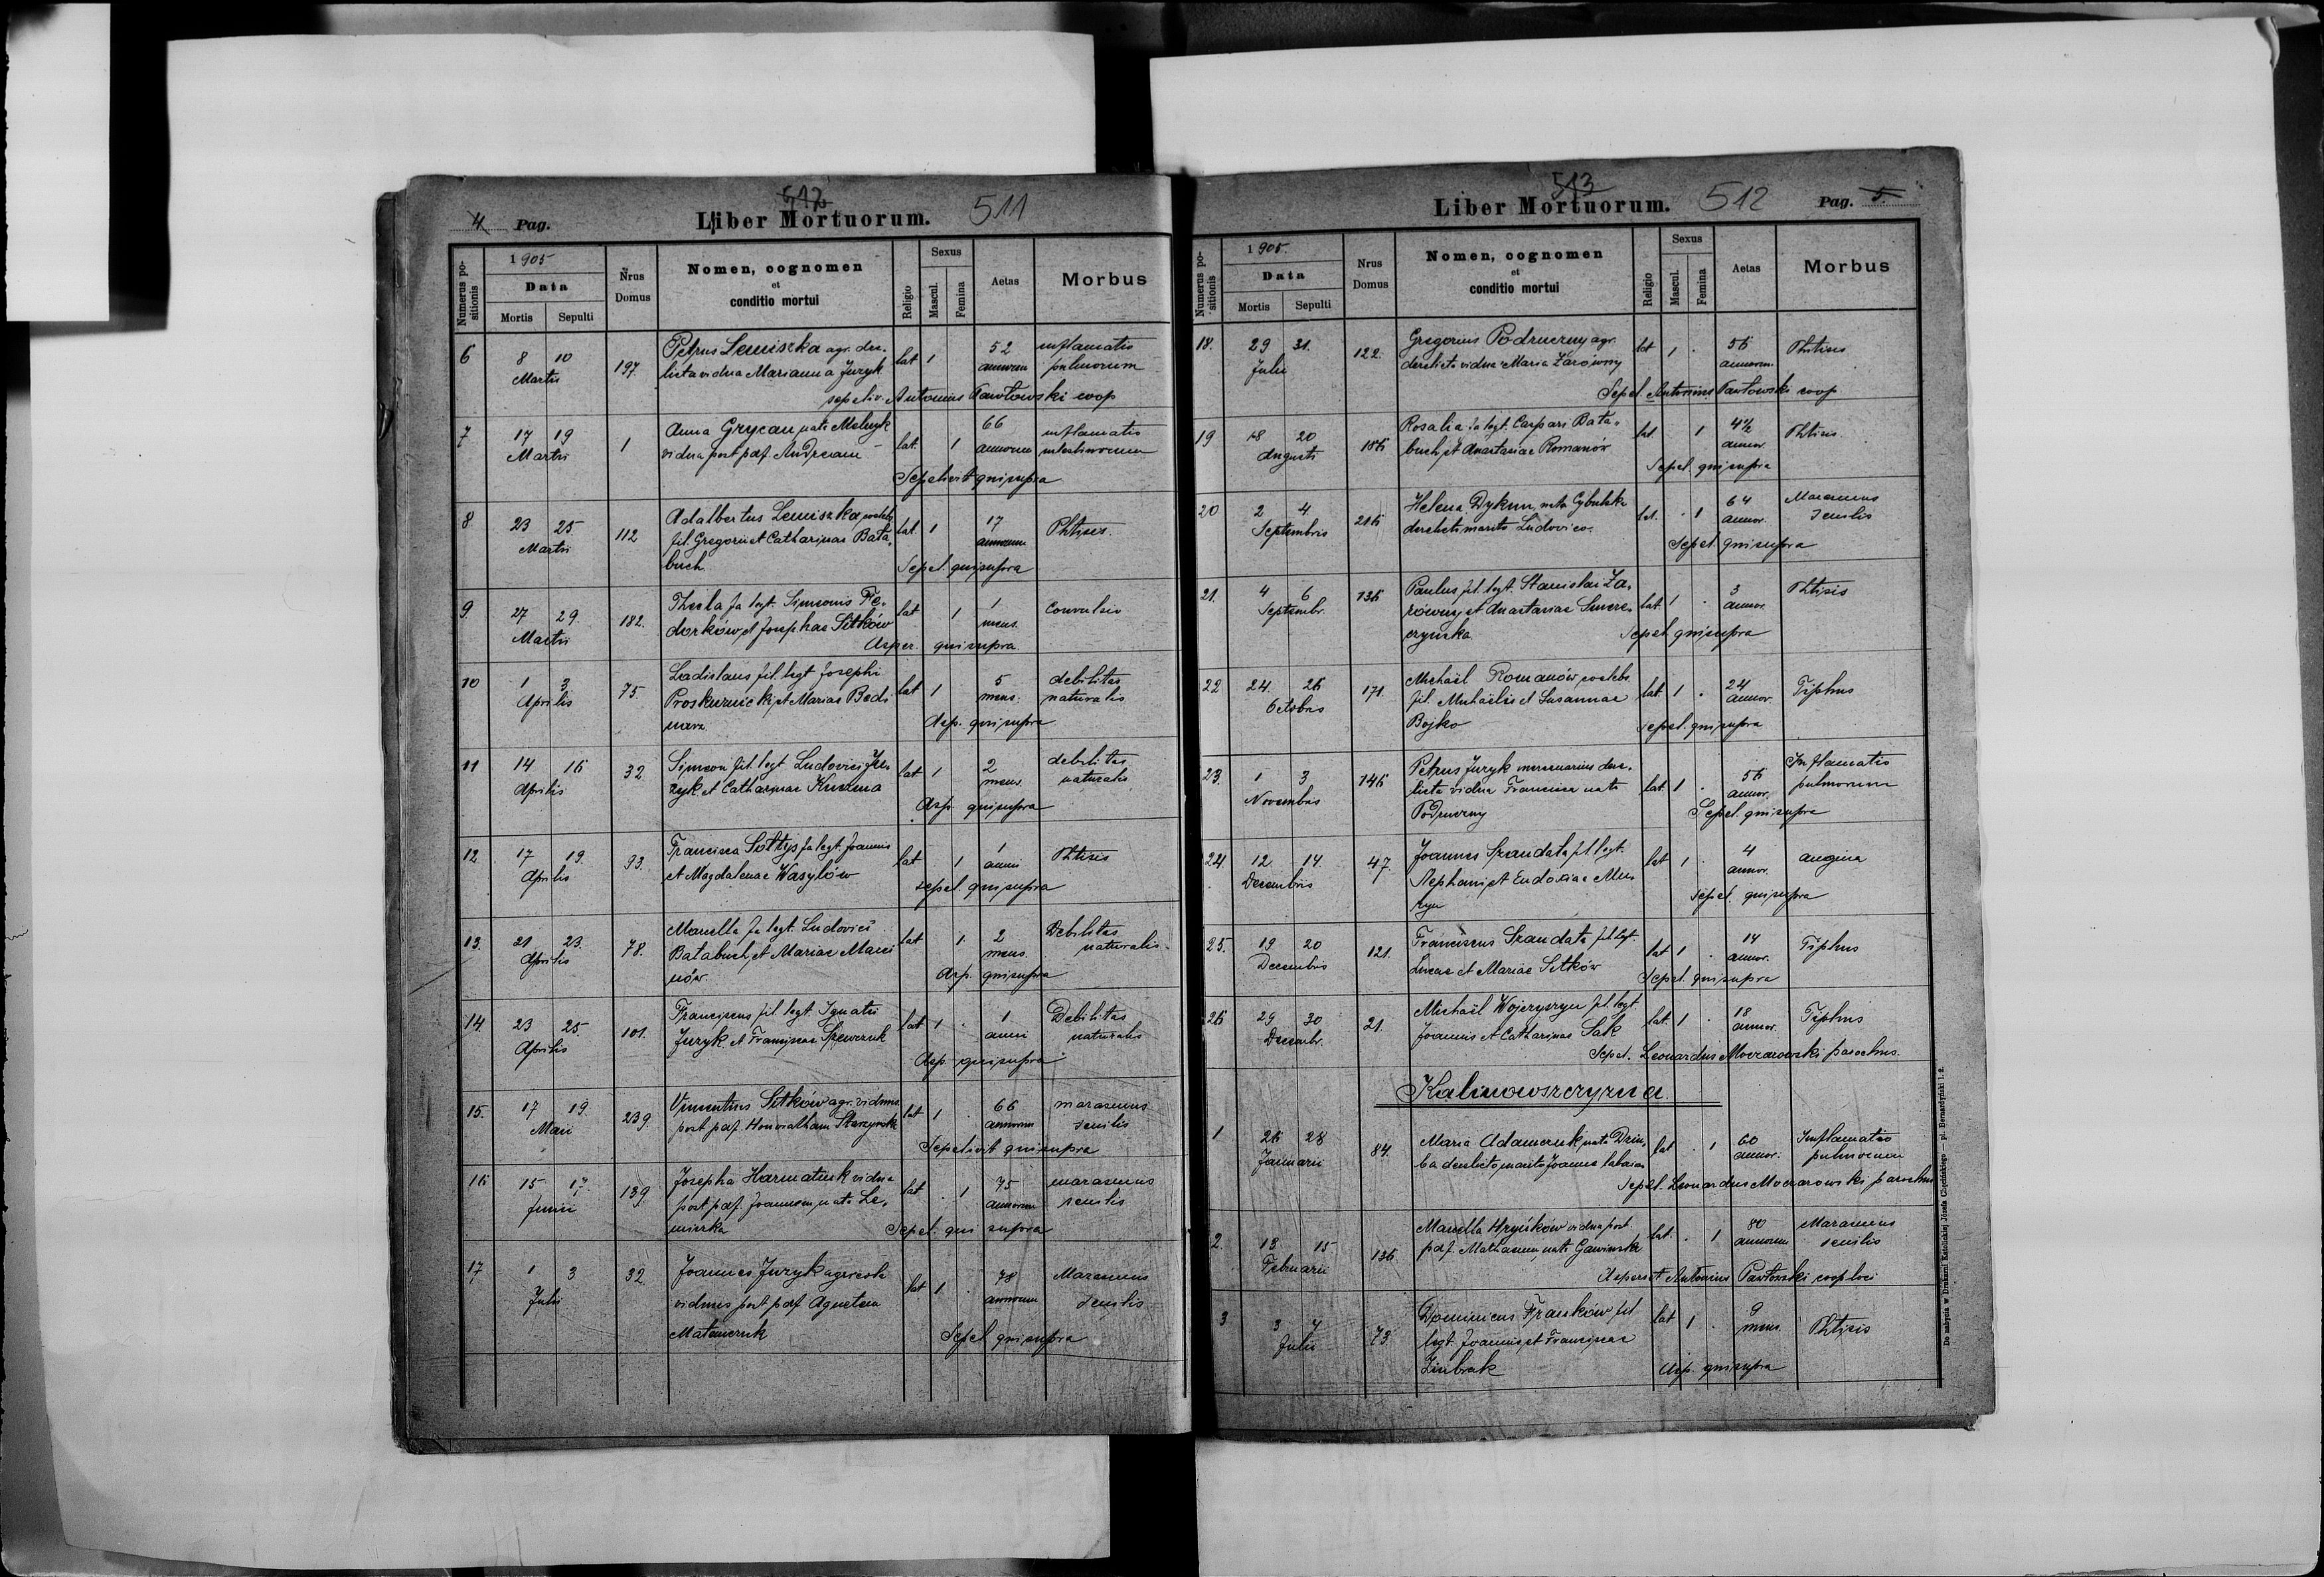 4 Pag. Liber Mortuorum. 512 511
Numerus positionis
1905
Data
Mortis Sepulti
Nrus Domus
Nomen, cognomen
et
conditio mortui
Religio
Sexus
Mascul. Femina
Aetas
Morbus
6 8 10 Martii 197. Petrus Lemiszka agr. dere- lat 1 52 inflamatio
licta vidua Marianna Juryk annorum pulmorum
sepeliv. Antonius Pawłowski coop
7 17 19 Martii 1 Anna Grycan nata Melnyk lat. 1 66 inflamatio
vidua post pdf. Andream annorum intestinorum
Sepelivit qui supra
8 23 25 Martii 112 Adalbertus Lemiszka coelebs lat. 1 17 Phtisis.
fil. Gregorii et Catharinae Bata- annorum
buch. Sepel. qui supra
9. 27 29 Martii 182. Thecla fa legt. Simeonis Fe- lat 1 1 Convulsio
dorków et Josephae Sitków mens.
Asper. qui supra.
10 1 3 Aprilis 75. Ladislaus fil. legt Josephi lat 1 5 debilitas
Proskurnicki et Mariae Bed mens. naturalis
narz. Asp. qui supra
11 14 16 Aprilis 32 Simeon fil. legt Ludovici Ju- lat 1 2 debilitas
ryk et Catharinae Kuzma mens. naturalis
Asp. qui supra
12 17 19. Aprilis 93. Francisca Sołtys fa legt. Joannis lat 1 1 Phtisis
et Magdalenae Wasylów anni
sepel. qui supra
13. 21 23. Aprilis 78. Marcella fa legt. Ludovici lat 1. 2 Debilitas
Batabuch et Mariae Marci mens. naturalis.
nów. Asp. qui supra
14 23 25 Aprilis 101. Franciscus fil. legt. Ignatii lat 1 . 1 Debilitas
Juryk et Franciscae Szewczuk anni naturalis
Asp. qui supra
15. 17 19. Maii 239 Vincentius Sitków agr. viduus lat 1 . 66 marasmus
post pdf. Honoratham annorum senilis
Sepelivit qui supra
16 15 17. Junii 139. Josepha Harmatiuk vidua lat . 1 75 marasmus
post pdf. Joannem, nata Le- annorum senilis
miszka Sepel. qui supra
17 1 3 Julii 32. Joannes Juryk agricola lat 1 . 78 Marasmus
viduus post pdf Agnetem annorum senilis
Matawczuk Sepel qui supra
Liber Mortuorum. 513 512 Pag. 5.
Numerus positionis
1905.
Data
Mortis Sepulti
Nrus Domus
Nomen, cognomen
et
conditio mortui
Religio
Sexus
Mascul. Femina
Aetas
Morbus
18. 29 31. Julii 122. Gregorius Podruczny agr. lat 1 . 56 Phtisis
derelicta vidua Maria Zarówny annorum.
Sepel. Antonius Pawłowski coop
19 18 20 Augusti 186 Rosalia fa legt. Caspari Bata- lat. 1 4½ Phtisis.
buch et Anastasiae Romanów annor.
Sepel. qui supra
20 2 4. Septembris 216 Helena Dykun, nata Cybulska lat. . 1 64 Marasmus
derelicto marito Ludovico. annor. senilis
Sepel. qui supra
21. 4 6 Septembr. 136 Paulus fil. legt. Stanislai Za- lat. 1 . 3 Phtisis
równy et Anastasiae annor.
Sepel. qui supra
22 24. 26 Octobris 171. Michaël Romanów coelebs lat. 1 . 24 Tiphus
fil. Michaëlis et Susannae annor.
Bojko sepel. qui supra
23. 1 3 Novembris 146 Petrus Juryk mercenarius dere- lat. 1 . 56 Inflamatio
licta vidua Francisca nata annor. pulmorum
Podruczny Sepel. qui supra
24 12 14. Decembris 47. Joannes Szandała fil legt. lat 1 . 4 angina
Stephani et Eudoxiae annor.
sepel. qui supra
25. 19 20 Decembris 121. Franciscus Szandała fil. legt. lat 1 . 14 Tiphus
Lucae et Mariae Sitków annor.
Sepel. qui supra
26 29 30 Decembr. 21. Michaël Wojczyszyn fil. legt. lat. 1 . 18 Tiphus
Joannis et Catharinae Sak annor.
Sepel. Leonardus Moczarowski parochus.
Kalinowszczyzna.
1 26 28 Januarii 84. Maria Adamczuk, nata Dziu- lat . 1 60 Inflamatio
ba derelicto marito Joanne annor. pulmorum
Sepel. Leonardus Moczarowski parochus
2. 13 15 Februarii 136 Marcella Hryńków vidua post lat. . 1 80 Marasmus
pdf. Mathaeum, nata Gawińska annorum senilis
Aspersit Antonius Pawłowski coop loci
3 3 4 Julii 73. Dominicus Frankków fil lat 1 . 9 Phtisis
legt. Joannis et Franciscae mens.
Ziubrak Asp. qui supra
Do nabycia w Drukarni Katolickiej Józefa Chęcińskiego — pl. Bernardyński l. 2.